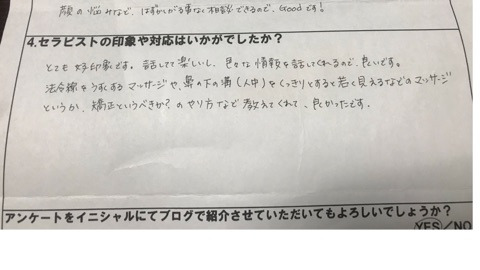 顔の悩みなど、はずかしがる事なく相談できるので、Goodです!
4.セラピストの印象や対応はいかがでしたか?
とても好印象です。話してて楽しいし、色々な情報を話してくれるので、良いです。
法令線をうすくするマッサージや、鼻の下の溝(人中)をくっきりとすると若く見えるなどのマッサージ
というか、矯正というべきか?のやり方など教えてくれて、良かったです。
アンケートをイニシャルにてブログで紹介させていただいてもよろしいでしょうか?
YES/NO